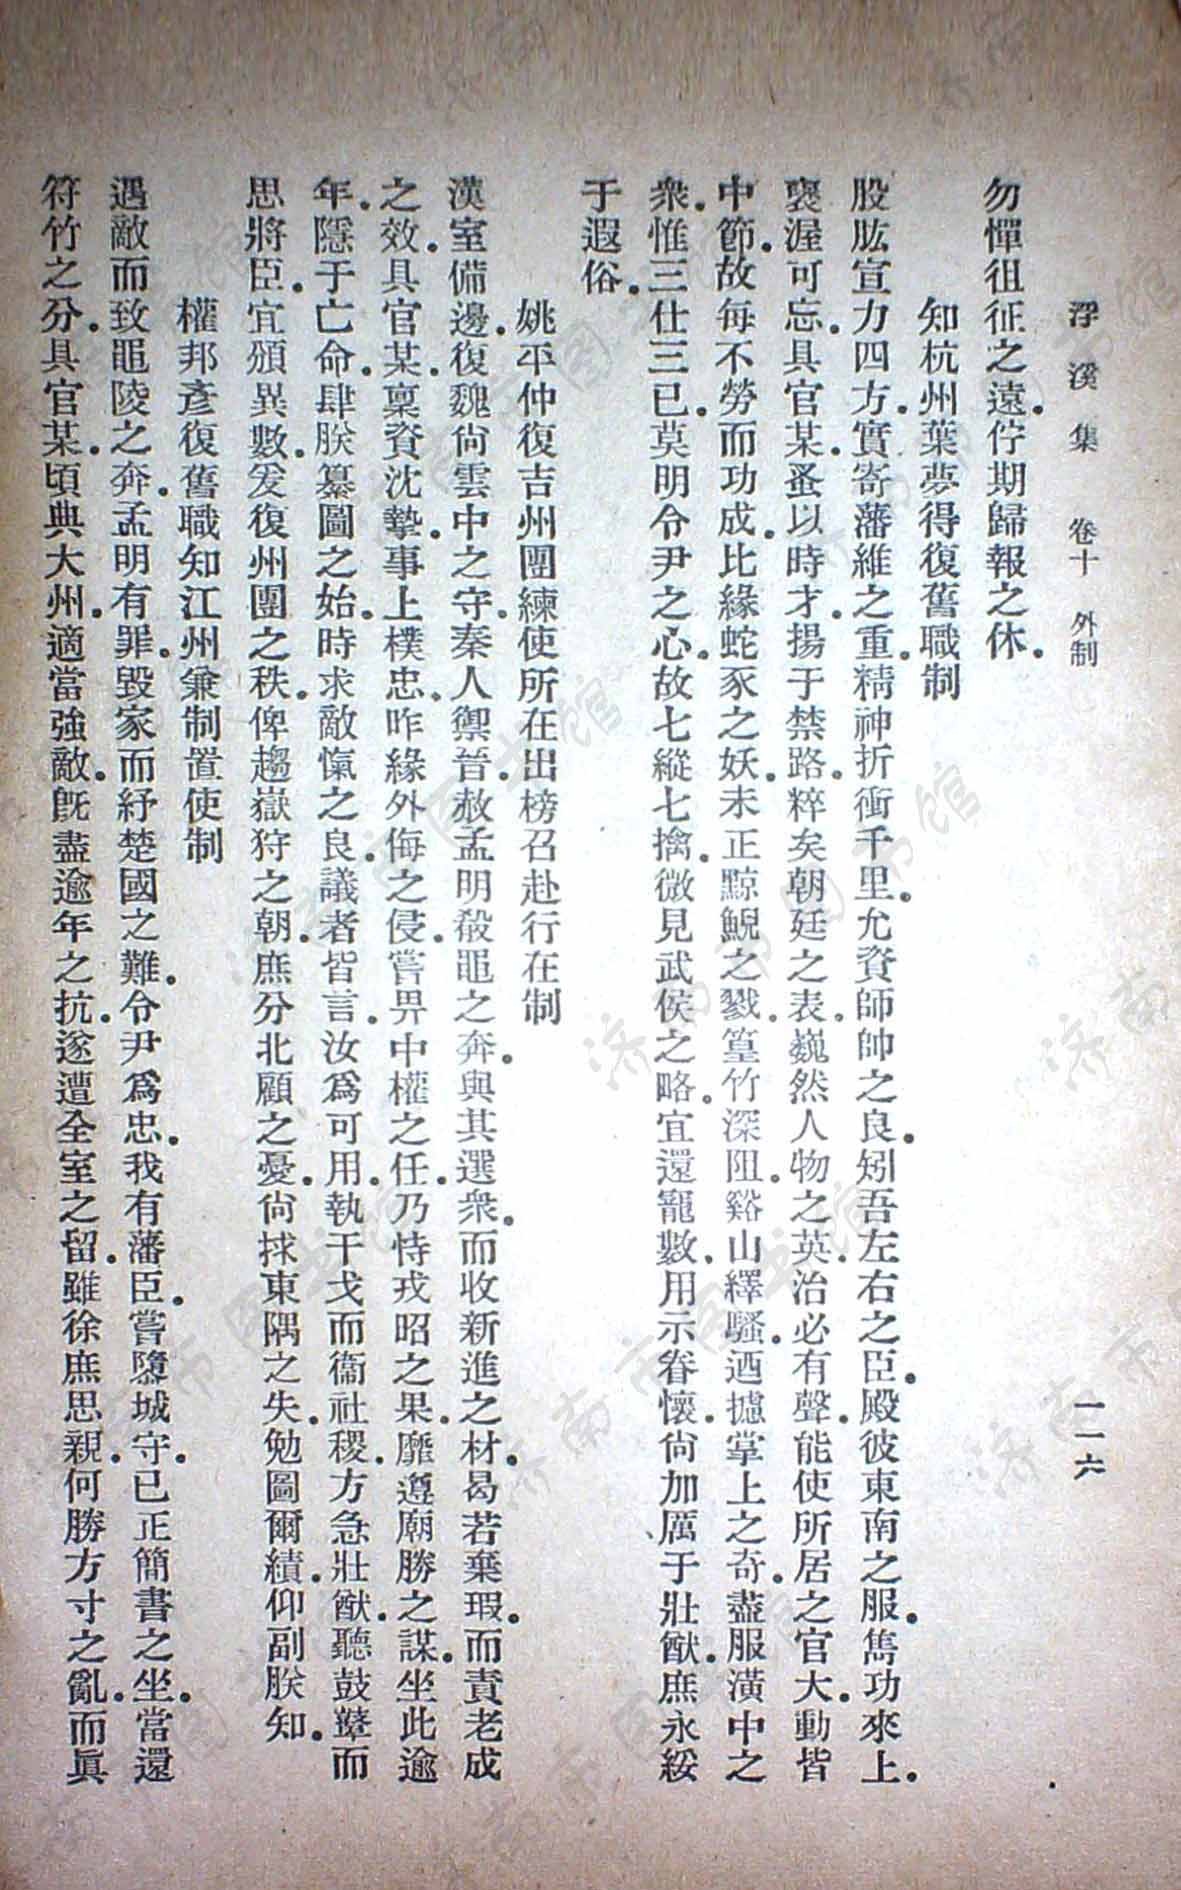 浮溪集　卷十　外制　一一六
勿憚徂征之遠。佇期歸報之休。
知杭州葉夢得復舊職制
股肱宣力四方。實寄藩維之重。精神折衝千里。允資師帥之良。矧吾左右之臣。殿彼東南之服。雋功來上。
褒渥可忘。具官某。蚤以時才。揚于禁路。粹矣朝廷之表。巍然人物之英。治必有聲。能使所居之官大。動皆
中節。故每不勞而功成。比緣蛇豕之妖。未正鯨鯢之戮。篁竹深阻。谿山繹騷。迺攄掌上之奇。盡服潢中之
衆。惟三仕三已。莫明令尹之心。故七縱七擒。微見武侯之略。宜還寵數。用示眷懷。尙加厲于壯猷。庶永綏
于遐俗。
姚平仲復吉州團練使所在出榜召赴行在制
漢室備邊。復魏尙雲中之守。秦人禦晉。赦孟明殽黽之奔。與其選衆。而收新進之材。曷若棄瑕。而責老成
之效。具官某。稟資沈摯。事上樸忠。昨緣外侮之侵。嘗畀中權之任。乃恃戎昭之果。靡遵廟勝之謀。坐此逾
年。隱于亡命。肆朕纂圖之始。時求敵愾之良。議者皆言。汝爲可用。執干戈而衞社稷。方急壯猷。聽鼓鼙而
思將臣。宜頒異數。爰復州團之秩。俾趨嶽狩之朝。庶分北顧之憂。尙捄東隅之失。勉圖爾績。仰副朕知。
權邦彥復舊職知江州兼制置使制
遇敵而致黽陵之奔。孟明有罪。毀家而紓楚國之難。令尹爲忠。我有藩臣。嘗隳城守。已正簡書之坐。當還
符竹之分。具官某。頃典大州。適當強敵。旣盡逾年之抗。遂遭全室之留。雖徐庶思親。何勝方寸之亂。而眞